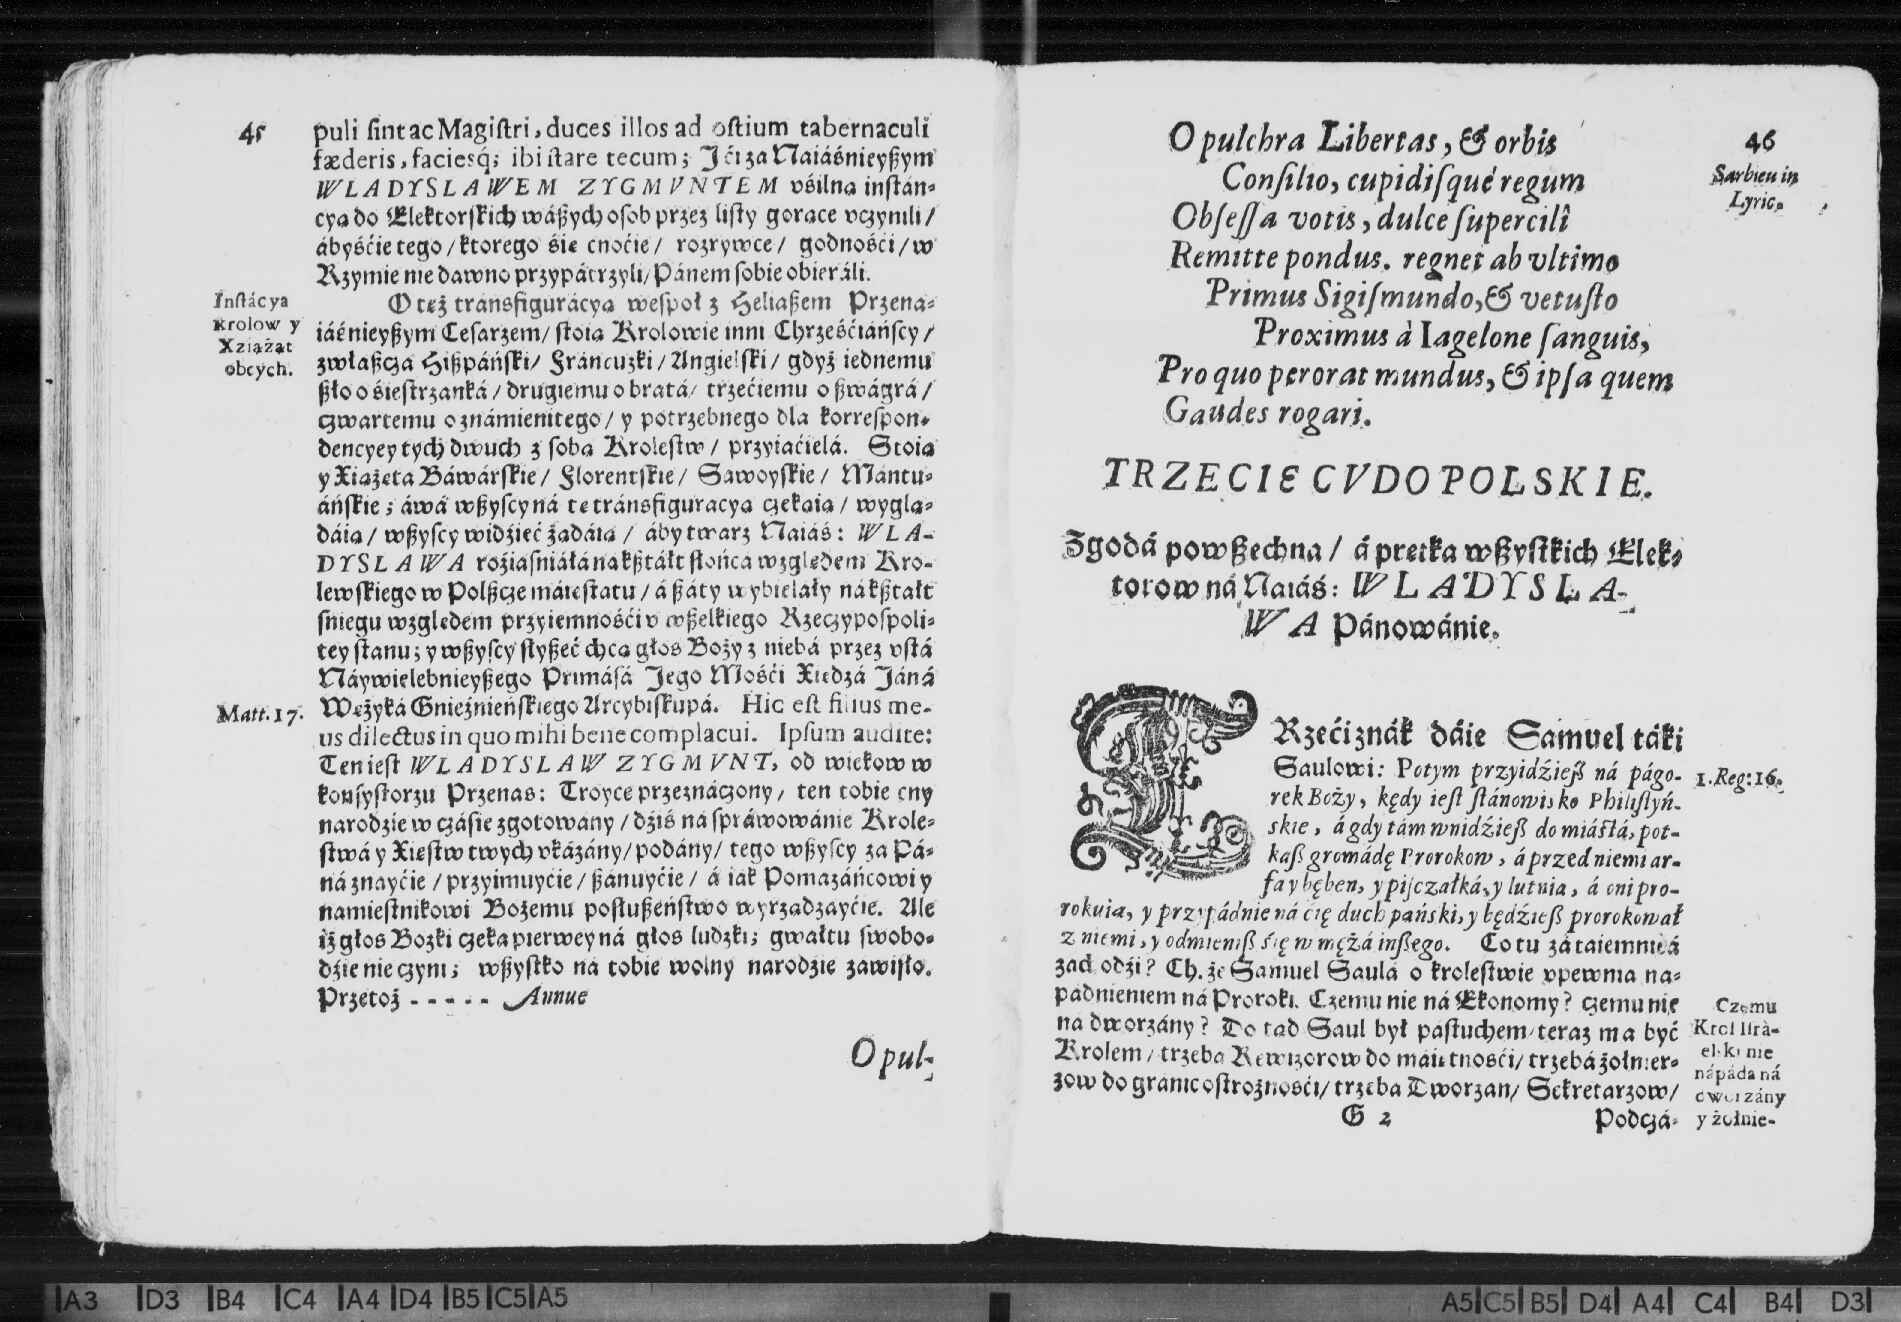 45
puli sint ac Magistri, duces illos ad ostium tabernaculi
fæderis, faciesq́; ibi stare tecum; Jći za Naiáśnieyßym
WLADYSLAWEM ZYGMVNTEM vśilna instán-
cya do Elektorskich wáßych osob przez listy gorace vczynili /
ábyśćie tego / ktorego śie cnoćie / rozrywce / godnośći / w
Rzymie nie dawno przypátrzyli / Pánem sobie obieráli.
Instácya
Krolow y
Xziążąt
obcych.
O też tránsfigurácya wespoł z Heliaßem Przena-
iáśnieyßym Cesarzem / stoia Krolowie inni Chrześćiáńscy /
zwłaßcza Hißpáński / Fráncuzki / Angielski / gdyż iednemu
ßło o śiestrzanká / drugiemu o bratá / trzećiemu o ßwágrá /
czwartemu o známienitego / y potrzebnego dla korrespon-
dencyey tych dwuch z soba Krolestw / przyiaćielá. Stoia
y Xiążeta Báwárskie / Florentskie / Sawoyskie / Mántu-
áńskie ; áwá wßyscy ná te tránsfiguracya czekaia / wygla-
dáia / wßyscy widźieć żadáia / áby twarz Naiáś: WLA-
DYSLAWA roźiaśniáłá na kßtáłt słońca względem Kro-
lewskiego w Polßcze máiestatu / á ßáty wybielały ná kßtałt
śniegu względem przyiemnośći v wßelkiego Rzeczypospoli-
tey stanu; y wßyscy słyßeć chca głos Boży z niebá przez vstá
Náywielebnieyßego Primásá Jego Mośći Xiedzá Jáná
Matt. 17.
Wężyká Gnieźnieńskiego Arcybiskupá. Hic est filius me-
us dilectus in quo mihi bene complacui. Ipsum audite:
Ten iest WLADYSLAW ZYGMVNT, od wiekow w
konsystorzu Przenas: Troyce przeznáczony / ten tobie cny
narodzie w czásie zgotowany / dźiś na spráwowánie Krole-
stwá y Xiestw twych vkázány / podány / tego wßyscy za Pá-
ná znayćie / przyimuyćie / ßánuyćie / á iak Pomazáńcowi y
namiestnikowi Bożemu posłußeństwo wyrzadzayćie. Ale
iż głos Bozki czeka pierwey ná głos ludzki; gwałtu swobo-
dźie nie czyni; wßystko na tobie wolny narodzie záwisło.
Przetoż - - - - - Annue
O pul-
46
O pulchra Libertas, & orbis
Sarbieu in
Lyric.
Consilio, cupidisqué regum
Obsessa votis, dulce supercilî
Remitte pondus. regnet ab vltimo
Primus Sigismundo, & vetusto
Proximus à Iagelone sanguis,
Pro quo perorat mundus, & ipsa quem
Gaudes rogari.
TRZECIE CVDO POLSKIE.
Zgodá powßechna / á pretka wßystkich Elek-
torow ná Naiáś: WLADYSLA-
WA Pánowánie.
TRzeći znák dáie Samuel táki
Saulowi: Potym przyidźieß ná págo-
1. Reg: 16.
rek Boży, kędy iest stánowisko Philistyń-
skie, á gdy tám wnidźieß do miástá, pot-
kaß gromádę Prorokow, á przed niemi ar-
fa y bęben, y piszczałká, y lutnia, á oni pro-
rokuia, y przypádnie ná cię duch pański, y będźieß prorokował
z niemi, y odmieniß śię w mężá inßego. Co tu zá táiemnicá
zachodźi? Ch. że Samuel Saulá o krolestwie vpewnia na-
padnieniem ná Proroki. Czemu nie ná Ekonomy? czemu nie
Czemu
Krol Isrà-
elski nie
nápáda ná
dworzány
y żołnie-
na dworzány? Do tad Saul był pastuchem / teraz ma być
Krolem / trzeba Rewizorow do máietnośći / trzebá żołnier-
zow do granic ostrożnośći / trzeba Dworzan / Sekretarzow /
G 2
Podczá-
A3 D3 B4 C4 A4 D4 B5 C5 A5
A5 C5 B5 D4 A4 C4 B4 D3